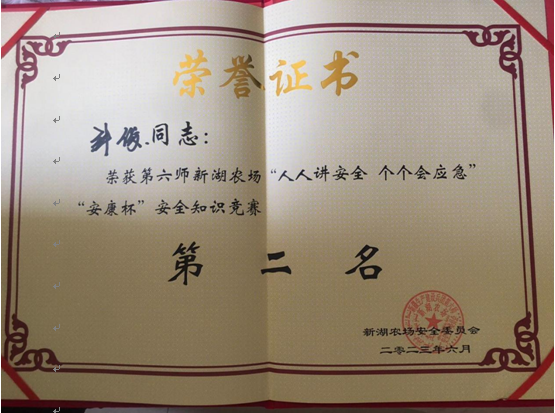 荣誉证书
同志：
荣获第六师新湖农场“人人讲安全 个个会应急”
“安康杯”安全知识竞赛
第二名
新湖农场安全委员会
二〇二三年六月